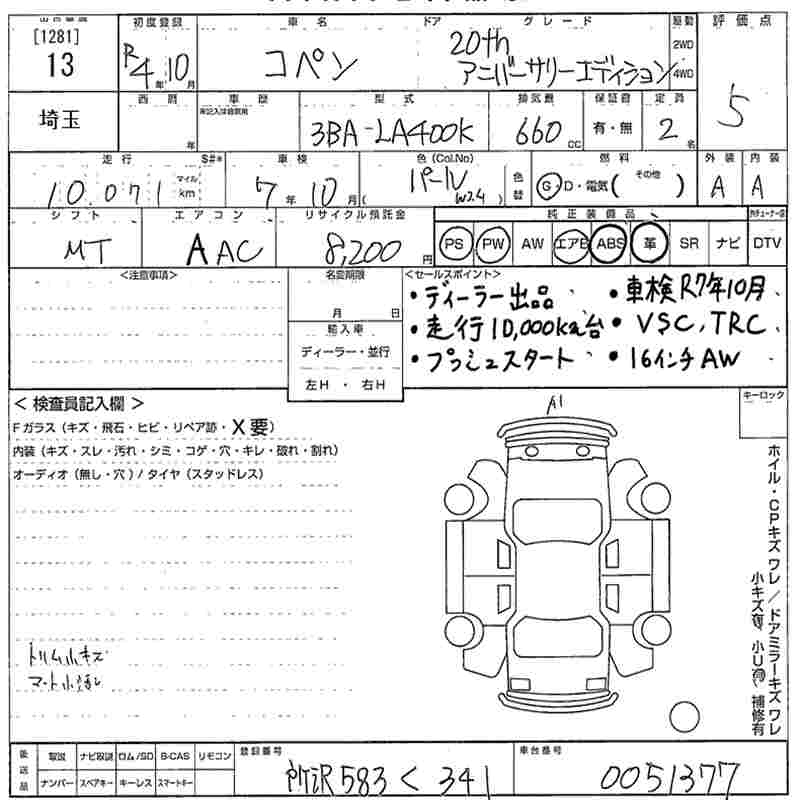 [1281]
13
埼玉
初度登録
R4年10月
車名 ドア グレード
コペン 20th アニバーサリーエディション
駆動
2WD
4WD
評価点
5
西暦
年
車歴
型式
3BA-LA400K
排気量
660cc
保証書
有・無
定員
2名
走行 S#*
10,071 マイル km
車検
7年10月
色(Col.No)
パール
(W24)
色替
燃料
G・D・電気( その他 )
外装
A
内装
A
シフト
MT
エアコン
AAC
リサイクル預託金
8,200円
純正装備品
PS PW AW エアB ABS 革 SR ナビ DTV
<注意事項>
名変期限
月 日
輸入車
ディーラー・並行
左H・右H
<セールスポイント>
・ディーラー出品 ・車検R7年10月
・走行10,000km台 ・VSC, TRC
・プッシュスタート ・16インチAW
<検査員記入欄>
Fガラス(キズ・飛石・ヒビ・リペア跡・X要)
内装(キズ・スレ・汚れ・シミ・コゲ・穴・キレ・破れ・割れ)
オーディオ(無し・穴)/タイヤ(スタッドレス)
トリム小キズ
マート小汚し
A1
キーロック
ホイル・CPキズワレ/ドアミラーキズワレ
小キズ有 小U有 補修有
後送品
取説 ナビ取説 ロム/SD B-CAS リモコン
ナンバー スペアキー キーレス スマートキー
登録番号
所沢583く341
車台番号
0051377